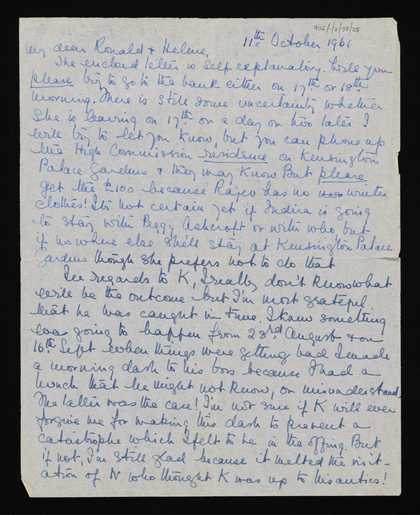 11th October 1961
My dear Ronald & Helène,
The enclosed letter is self explanatory. Will you
please try to go to the bank either on 17th or 18th
morning. There is still some uncertainty whether
she is leaving on 17th or a day or two later. I
will try to let you know, but you can phone up
the High Commission residence on Kensington
Palace Gardens & they may know. But please
get the £100 because Rajiv has no winter
clothes! Its not certain yet if Indira is going
to stay with Peggy Ashcroft or with who but
if no where else she'll stay at Kensington Palace
Gardens though she prefers not to do that
In regards to K, I really don't know what
will be the outcome but I'm most grateful
that he was caught in time. I knew something
was going to happen from 23rd August & on
16th Sept when things were getting bad I made
a morning dash to his boss because I had a
hunch that he might not know, or misunderstand.
The latter was the case! I'm not sure if K will ever
forgive me for making this dash to prevent a
catastrophe which I felt to be in the offing. But
if not, I'm still glad because it melted the
ation of N who thought K was up to his antics!